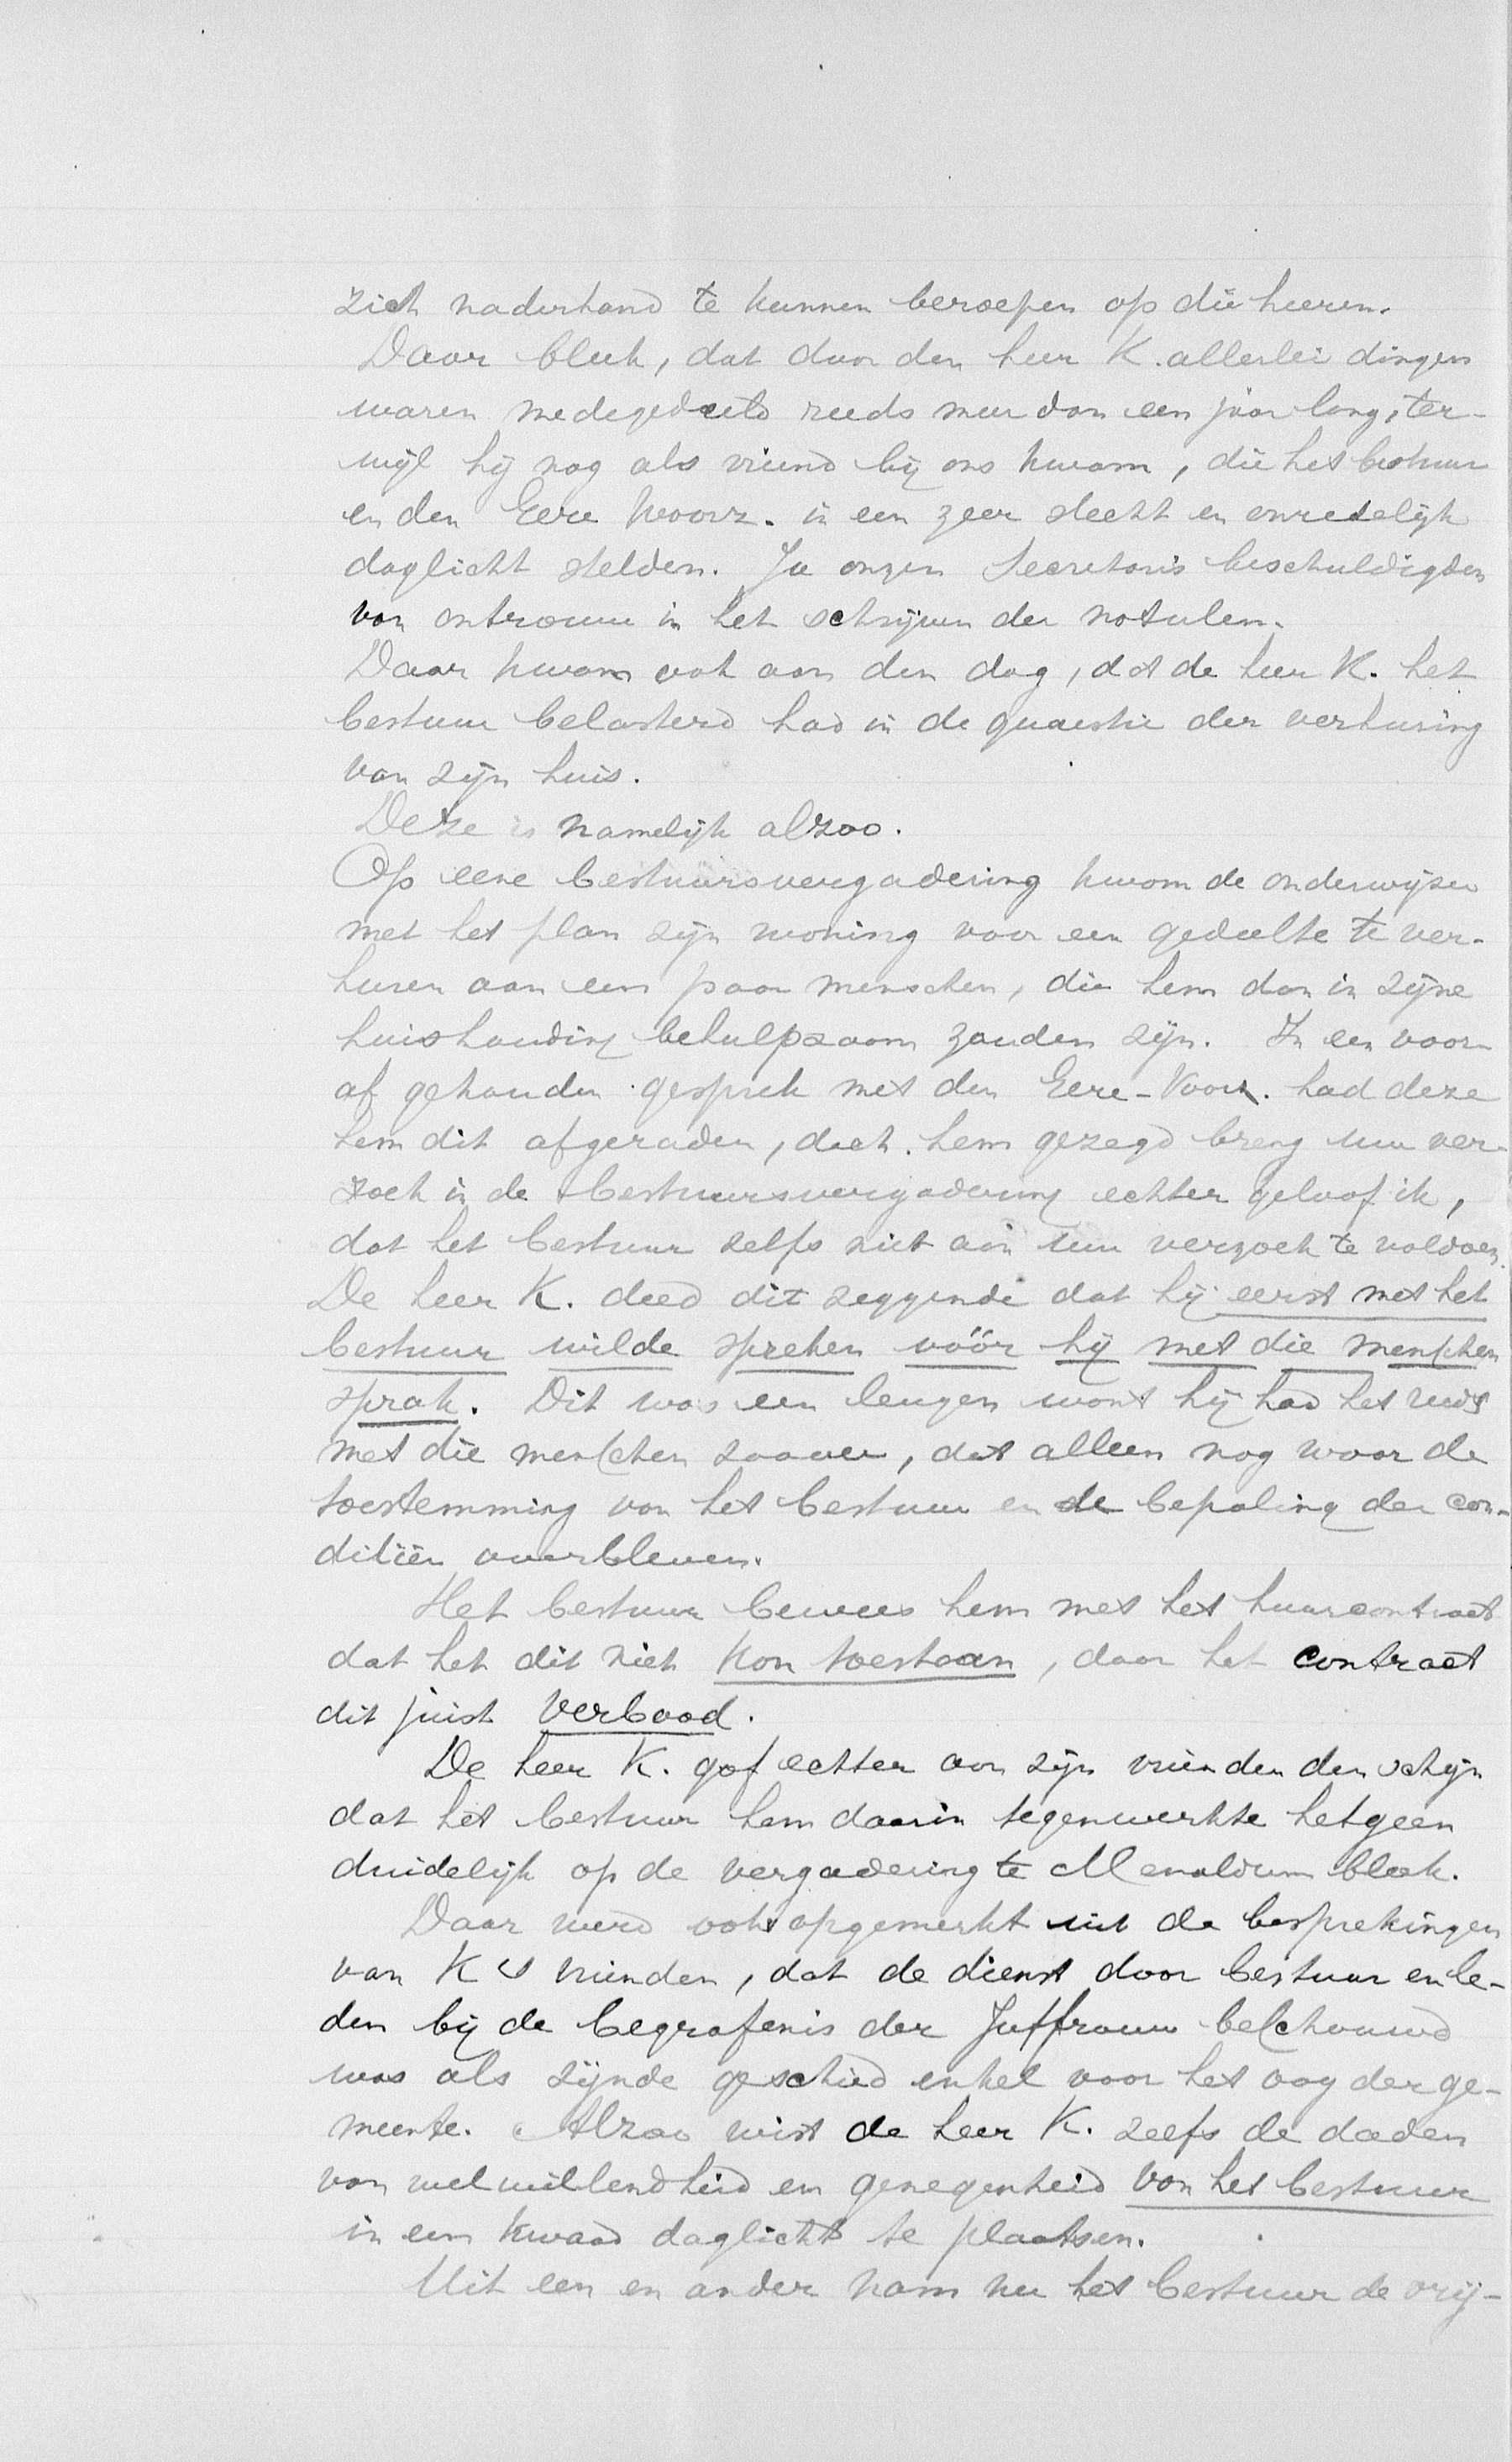 zich naderhand te kunnen beroepen op die heeren.
Daar bleek, dat door den heer K. allerlei dingen
waren medegedeeld reeds meer dan een jaar lang, ter-
wijl hij nog als vriend bij ons kwam, die het bestuur
en den Eere Voorz. in een zeer slecht en onredelijk
daglicht stelden. Ja onzen Secretaris beschuldigden
van ontrouw in het schrijven der notulen.
Daar kwam ook aan den dag, dat de heer K. het
bestuur belasterd had in de quaestie der verhuring
van zijn huis.
Deze is namelijk alzoo.
Op eene bestuursvergadering kwam de onderwijzer
met het plan zijn woning voor een gedeelte te ver-
huren aan een paar menschen, die hem dan in zijne
huishouding behulpzaam zouden zijn. In een voor
af gehouden gesprek met den Eere-Voorz. had deze
hem dit afgeraden, doch hem gezegd breng uw ver-
zoek in de bestuursvergadering echter geloof ik,
dat het bestuur zelfs niet aan uw verzoek te voldoen.
De heer K. deed dit zeggende dat hij eerst met het
bestuur wilde spreken vóór hij met die menschen
sprak. Dit was een leugen want hij had het reeds
met die menschen zoover, dat alleen nog maar de
toestemming van het bestuur en de bepaling der con-
ditiën overbleven.
Het bestuur bewees hem met het huurcontract
dat het dit niet kon toestaan, daar het contract
dit juist verbood.
De heer K. gaf echter aan zijn vrienden den schijn
dat het bestuur hem daarin tegenwerkte hetgeen
duidelijk op de vergadering te Menaldum bleek.
Daar werd ook opgemerkt uit de besprekingen
van K's vrienden, dat de dienst door bestuur en le-
den bij de begrafenis der Juffrouw beschouwd
was als zijnde geschied enkel voor het oog der ge-
meente. Alzoo wist de heer K. zelfs de daden
van welwillendheid en genegenheid van het bestuur
in een kwaad daglicht te plaatsen.
Uit een en ander nam nu het bestuur de vrij-